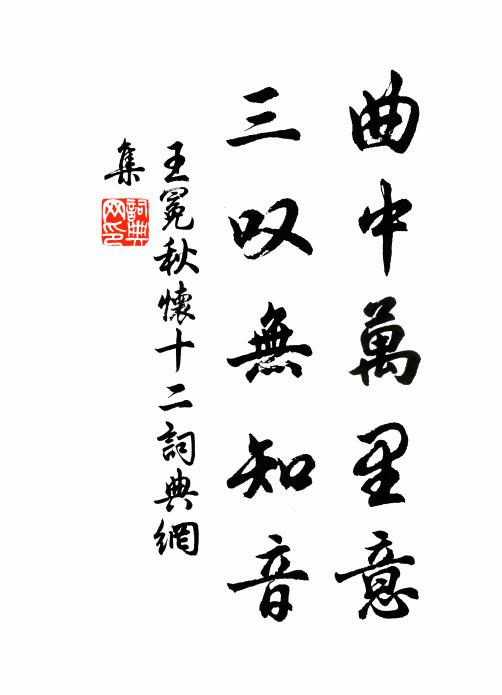 曲中萬里意
三叹無知音
王冕秋懷十二詞典網
集
詞典網印